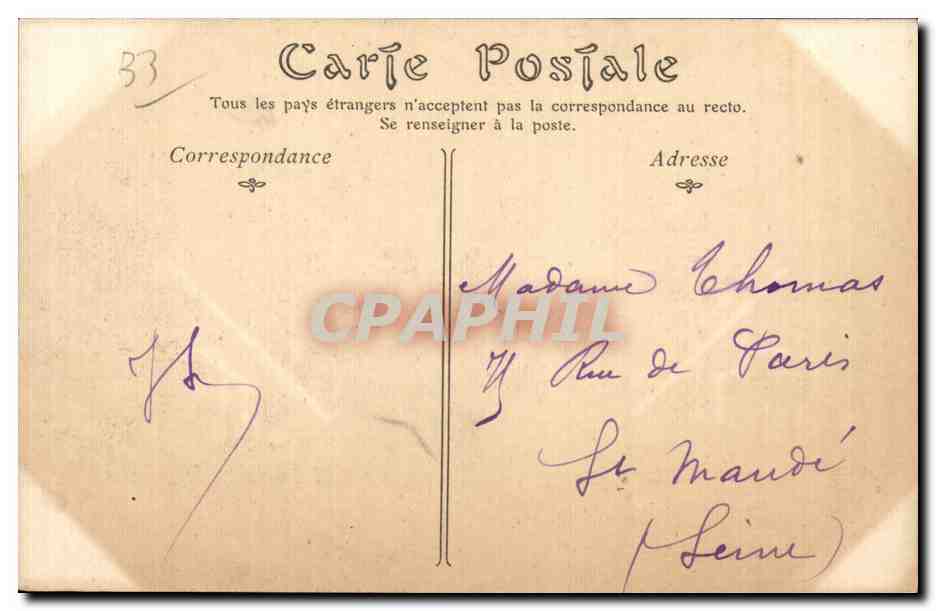 33
Carte Postale
Tous les pays étrangers n'acceptent pas la correspondance au recto.
Se renseigner à la poste.
Correspondance
Adresse
Madame Thomas
Rue de Paris
St Mandé
(Seine)
CPAPHIL